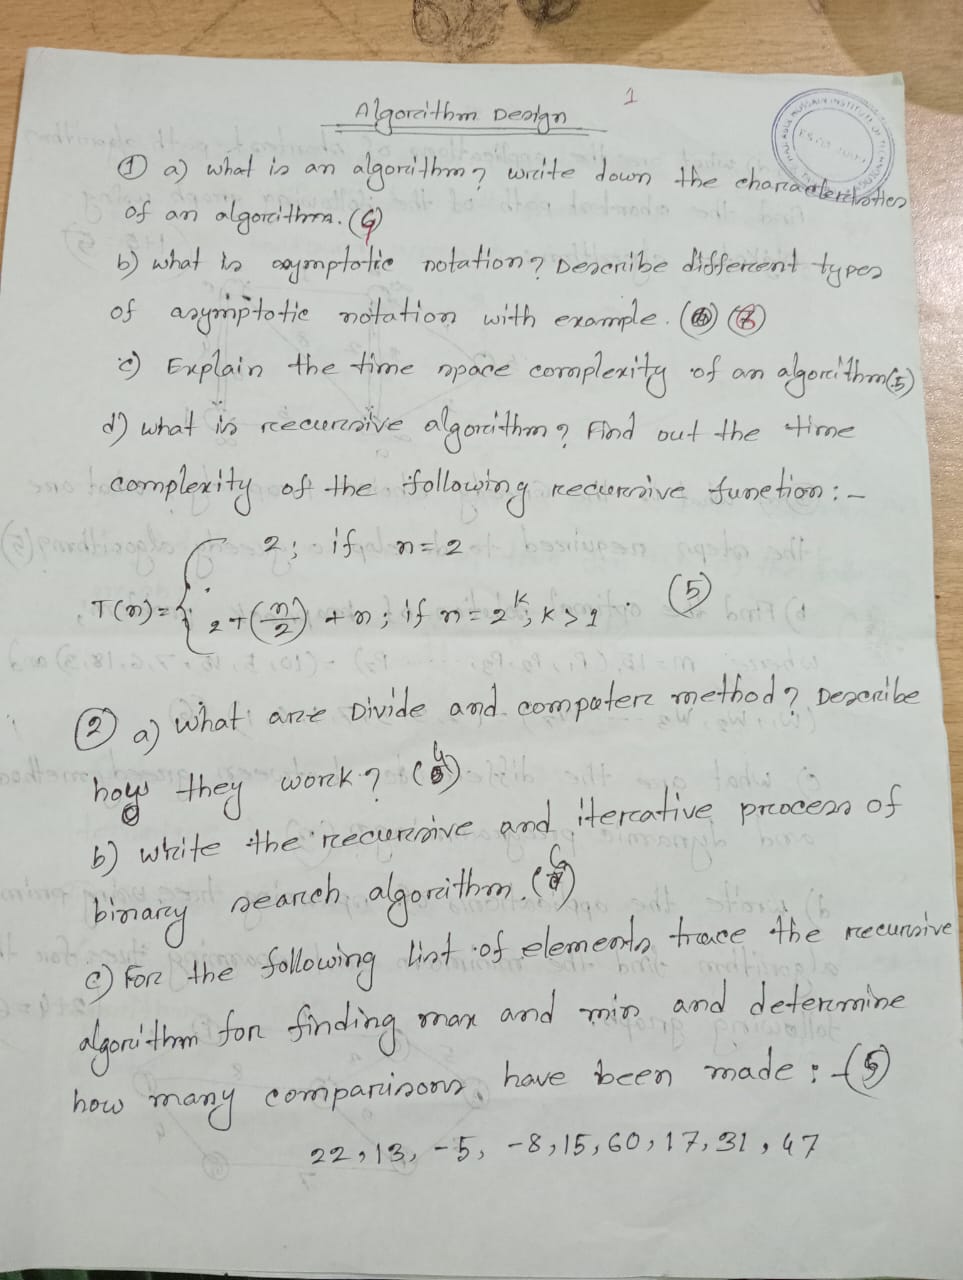 1
Algorithm Design
① a) what is an algorithm? write down the characteristics
of an algorithm.
b) what is asymptotic notation? Describe different types
of asymptotic notation with example.
c) Explain the time space complexity of an algorithm (5)
d) what is recursive algorithm? Find out the time
complexity of the following recursive function:-
2; if n = 2
T(n) = {
2T(n/2) + n; if n = 2^k; k > 1 (5)
② a) What are Divide and
method? Describe
how they work?
b) write the recursive and iterative process of
binary search algorithm.
c) For the following list of elements trace the recursive
algorithm for finding max and min and determine
how many comparisons have been made: (5)
22, 13, -5, -8, 15, 60, 17, 31, 47